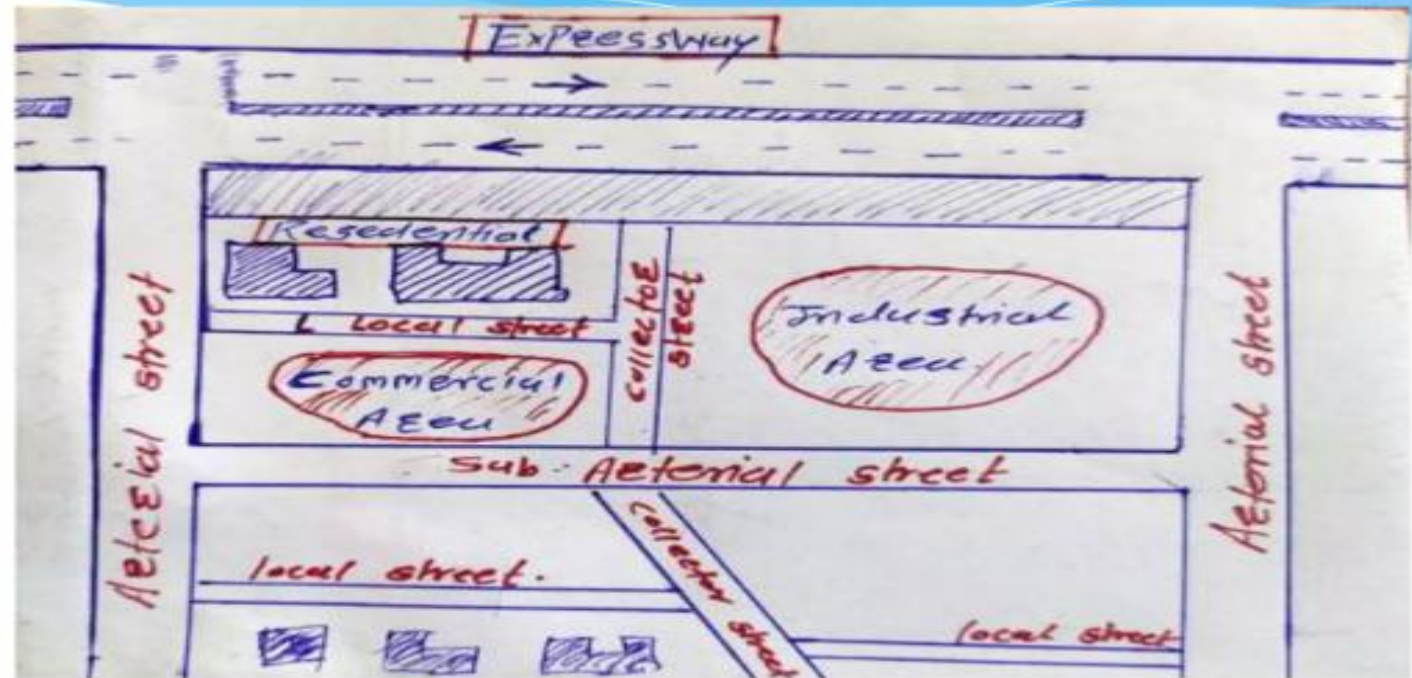 Expressway
Resedential
L Local street
Collector
street
Industrial
Area
Commercial
Area
Sub-Arterial street
Arterial street
Arterial street
local street.
Collector street
local street